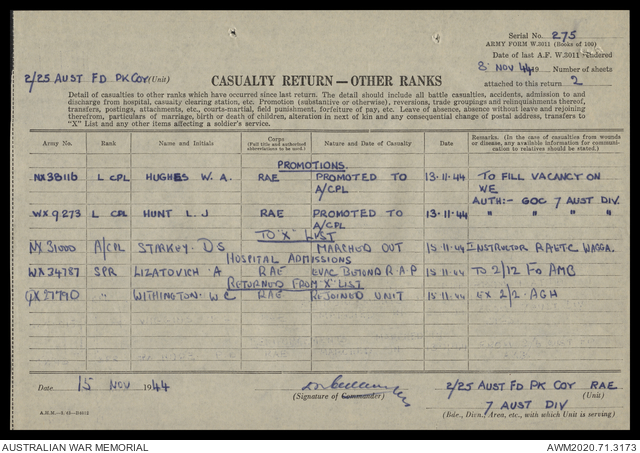 Serial No. 275
ARMY FORM W.3011 (Books of 100)
Date of last A.F. W.3011 rendered
8 NOV 44 19 Number of sheets
attached to this return 2
2/25 AUST FD PK COY (Unit)
CASUALTY RETURN—OTHER RANKS
Detail of casualties to other ranks which have occurred since last return. The detail should include all battle casualties, accidents, admission to and
discharge from hospital, casualty clearing station, etc. Promotion (substantive or otherwise), reversions, trade groupings and relinquishments thereof,
transfers, postings, attachments, etc., courts-martial, field punishment, forfeiture of pay, etc. Leave of absence, absence without leave and rejoining
therefrom, particulars of marriage, birth or death of children, alteration in next of kin and any consequential change of postal address, transfers to
"X" List and any other items affecting a soldier's service.
Army No. Rank Name and Initials Corps (Put title and authorised abbreviations to be used) Nature and Date of Casualty Date Remarks. (In the case of casualties from wounds or disease, any available information for communication to relatives should be stated.)
PROMOTIONS.
NX38116 L CPL HUGHES W. A. RAE PROMOTED TO A/CPL 13-11-44 TO FILL VACANCY ON WE
AUTH:- GOC 7 AUST DIV.
WX9273 L CPL HUNT L. J RAE PROMOTED TO A/CPL 13-11-44 " " " "
TO "X" LIST
NX31000 A/CPL STARKEY. D S MARCHED OUT 15-11-44 INSTRUCTOR RAETC WAGGA.
HOSPITAL ADMISSIONS
WX34787 SPR LIZATOVICH. A RAE EVAC BEYOND R.A.P 15-11-44 TO 2/12 FD AMB
RETURNED FROM "X" LIST
QX27790 " WITHINGTON. W C RAE REJOINED UNIT 15-11-44 EX 2/2 AGH
Date 15 NOV 1944
(Signature of Commander)
2/25 AUST FD PK COY RAE
(Unit)
7 AUST DIV
(Bde., Divn., Area, etc., with which Unit is serving)
AUSTRALIAN WAR MEMORIAL
AWM2020.71.3173